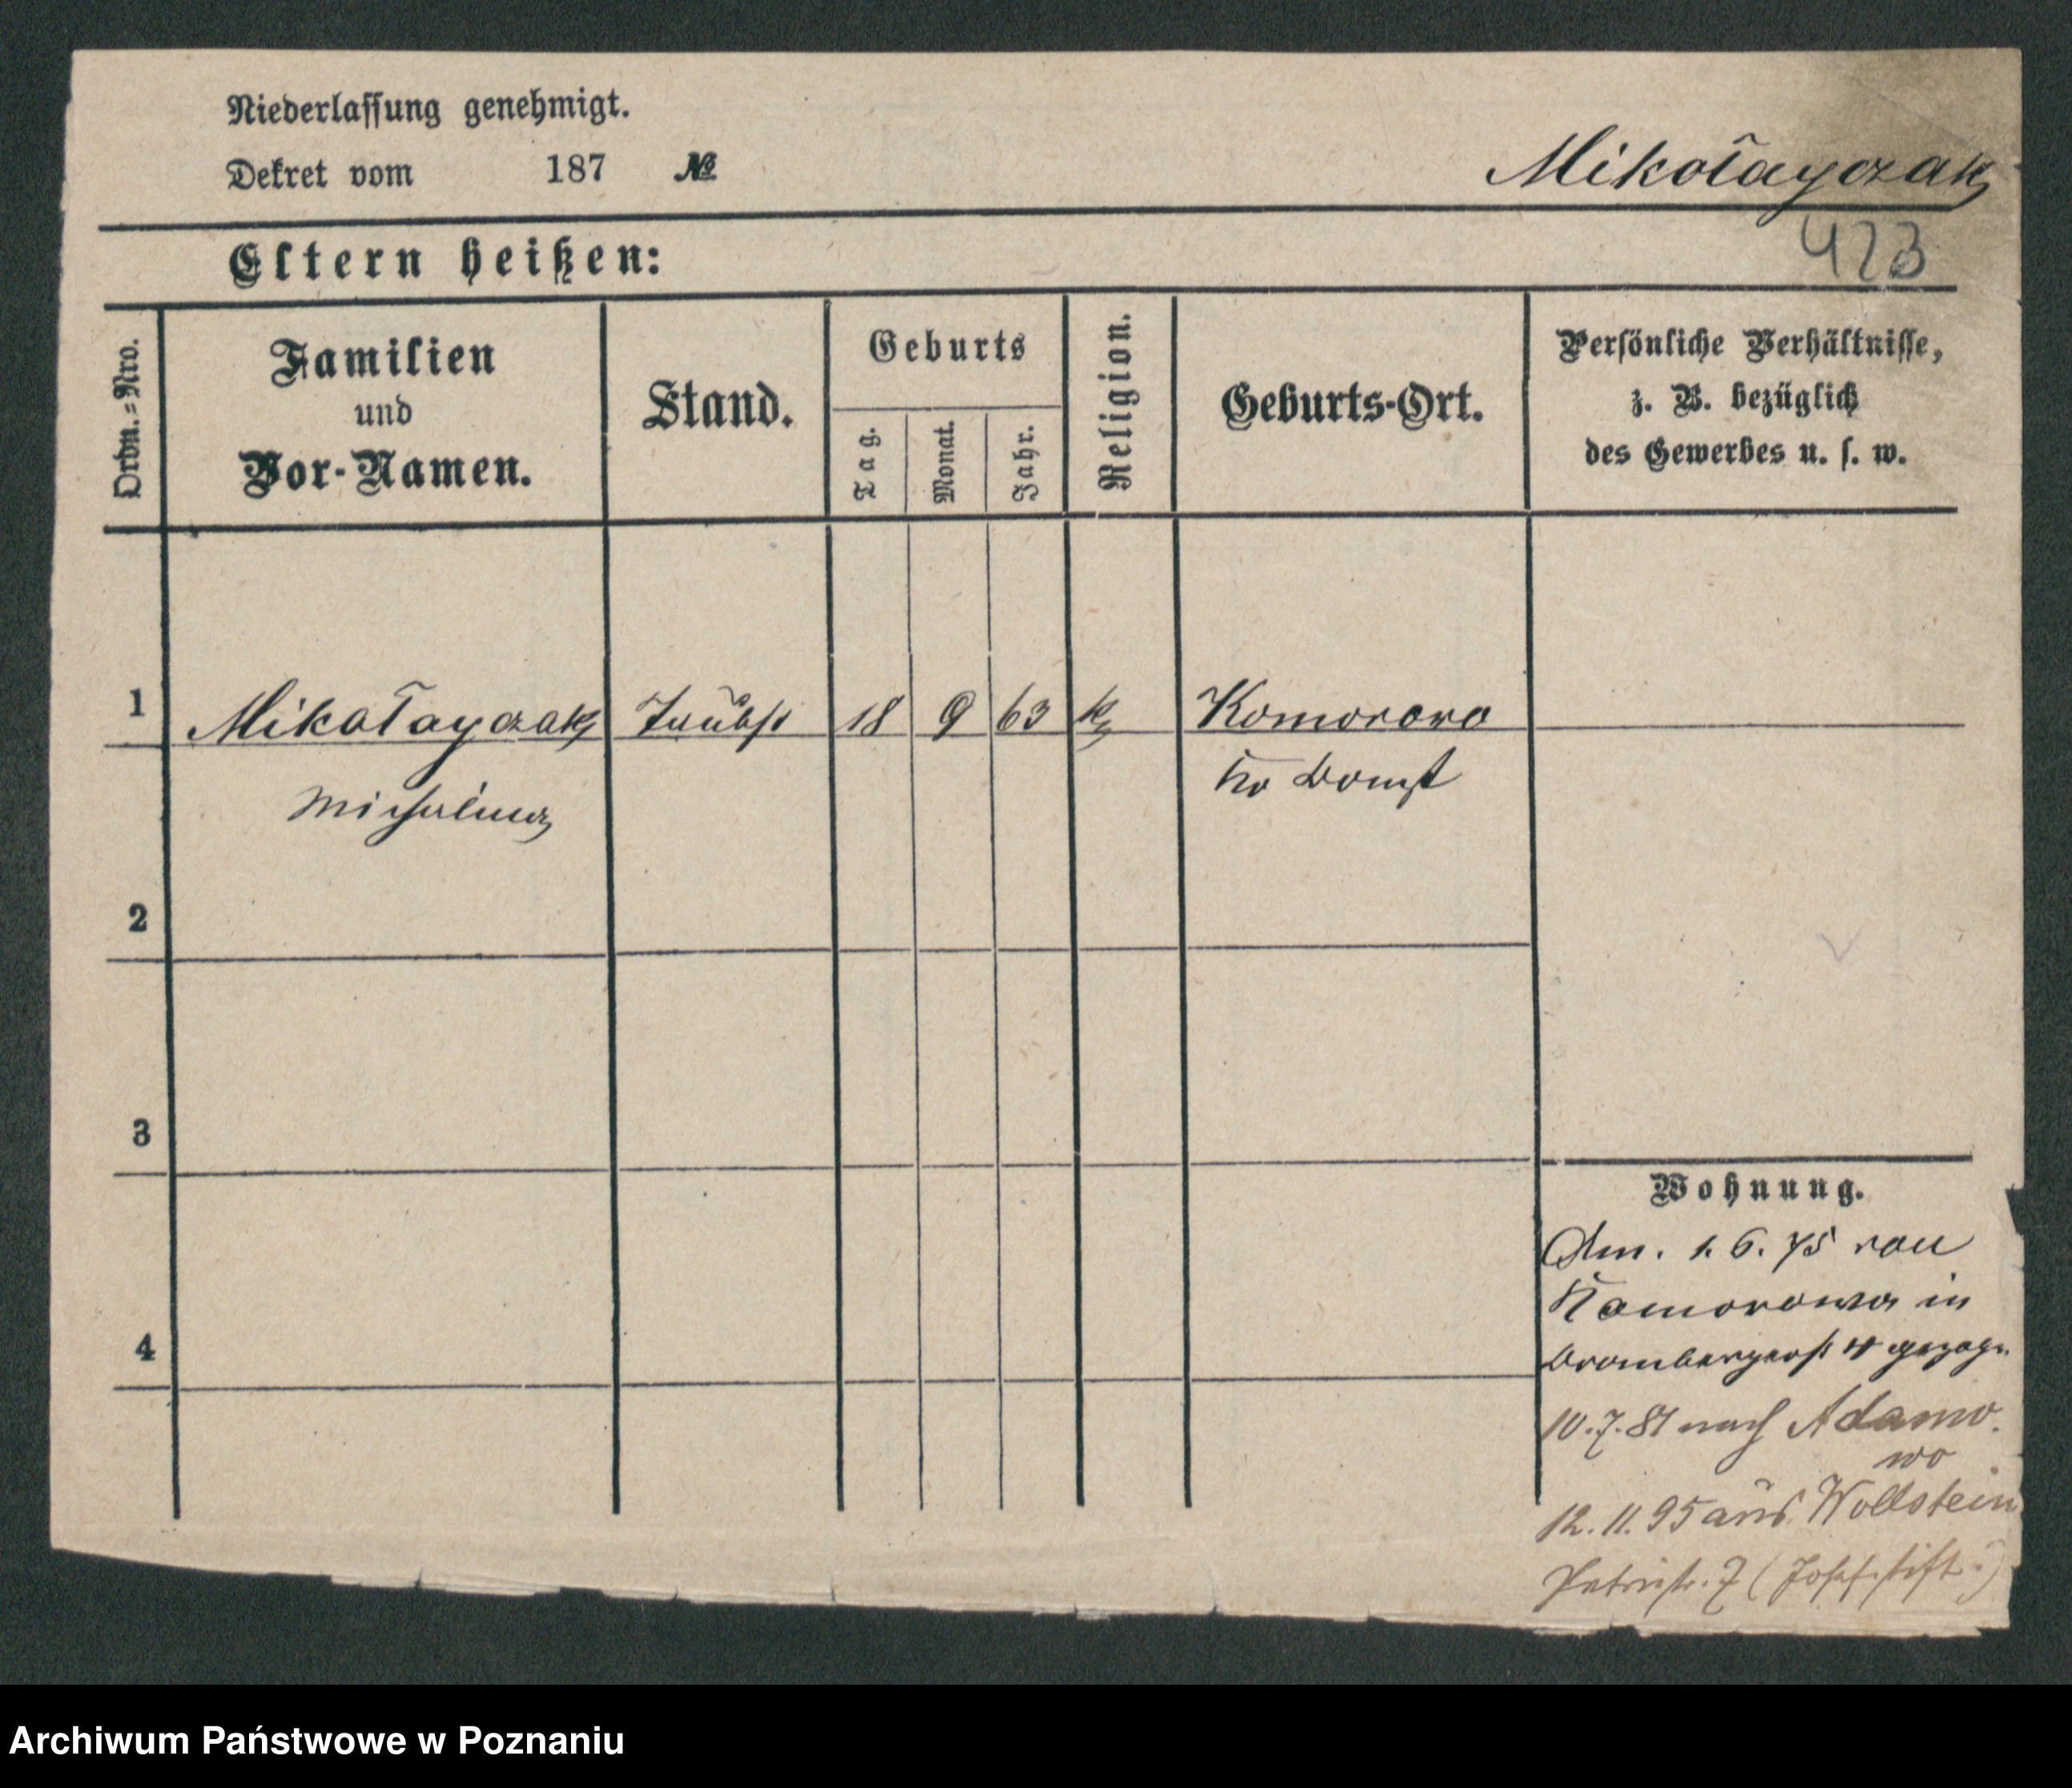 Niederlassung genehmigt.
Dekret vom 187 №
Mikołayczak
423
Eltern heißen:
Ordn.=Nro.
Familien
und
Vor-Namen.
Stand.
Geburts
Tag.
Monat.
Jahr.
Religion.
Geburts-Ort.
Persönliche Verhältnisse,
z. B. bezüglich
des Gewerbes u. s. w.
1 Mikołayczak 18 9 63 k Komorowo
Michalina Kr Bomst
2
3
4
Wohnung.
Am. 1. 6. 75 von
Komorowo in
Brombergerst 4 gezogn
10. 7. 81 nach Adamo-
wo
12. 11. 95 aus Wollstein
Petristr. 7 (Josefstift)
Archiwum Państwowe w Poznaniu